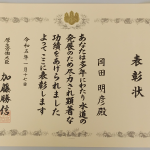 表彰状
岡田 明彦殿
あなたは多年にわたり水道の
発展のため尽力され顕著な
功績をあげられました
よってここに表彰します
令和五年一月十七日
厚生労働大臣
加藤勝信